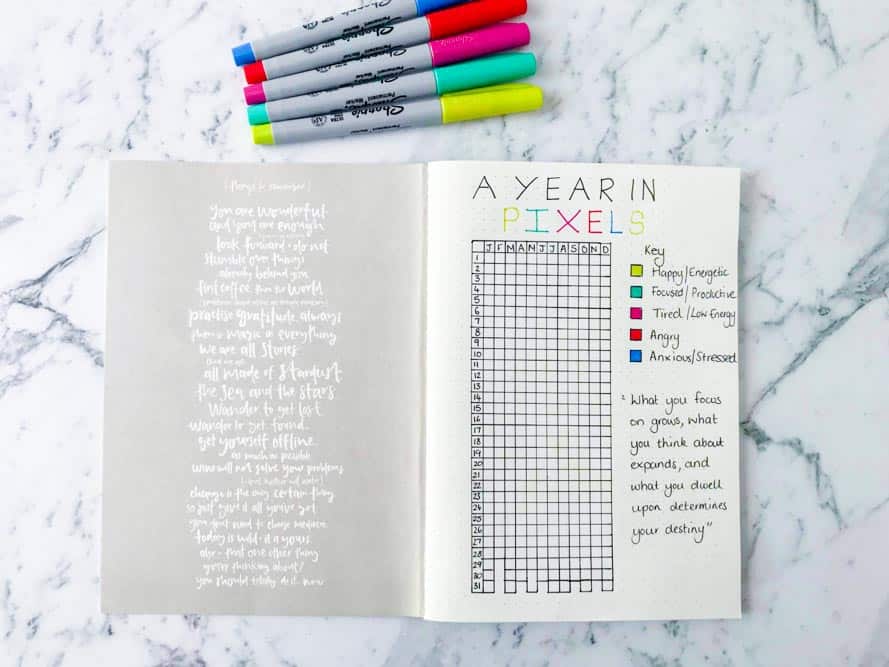 Sharpie
Permanent Marker
Sharpie
Permanent Marker
Sharpie
Permanent Marker
Sharpie
Permanent Marker
Sharpie
Permanent Marker
{things to remember}
you are wonderful
and you are enough
look forward · do not
stumble over things
already behind you
first coffee. then the world
practise gratitude always
there is magic in everything
we are all stories
all made of stardust
the sea and the stars
wander to get lost
wander to get found
get yourself offline
as much as possible
wine will not solve your problems
change is the only certain thing
so just give it all you've got
you don't need to change
today is wild · it is yours
also · that one other thing
you're thinking about?
you should totally do it. now
A YEAR IN
PIXELS
J F M A M J J A S O N D
1
2
3
4
5
6
7
8
9
10
11
12
13
14
15
16
17
18
19
20
21
22
23
24
25
26
27
28
29
30
31
Key
Happy/Energetic
Focused/Productive
Tired/Low Energy
Angry
Anxious/Stressed
"What you focus
on grows, what
you think about
expands, and
what you dwell
upon determines
your destiny"